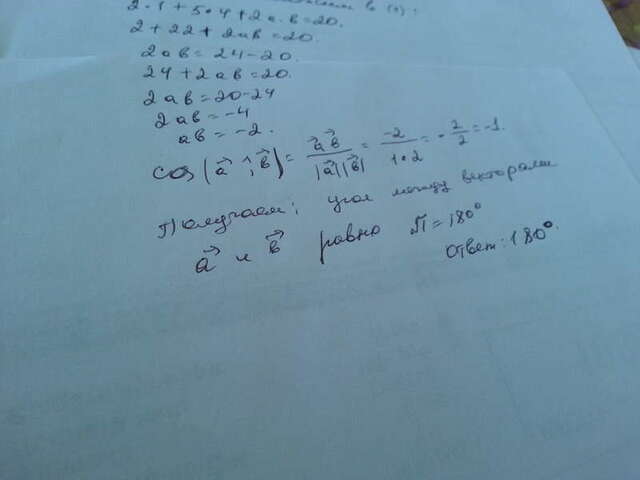 в (1).
2·1+5·4+2a·в=20.
2+22+2aв=20.
2aв=24-20.
24+2aв=20.
2aв=20-24
2aв=-4
aв=-2.
cos(a⃗,^в⃗)=a⃗в⃗/|a⃗||в⃗|=-2/1·2=-2/2=-1.
Получаем; угол между векторами
a⃗ и в⃗ равно π=180°
Ответ:180°.